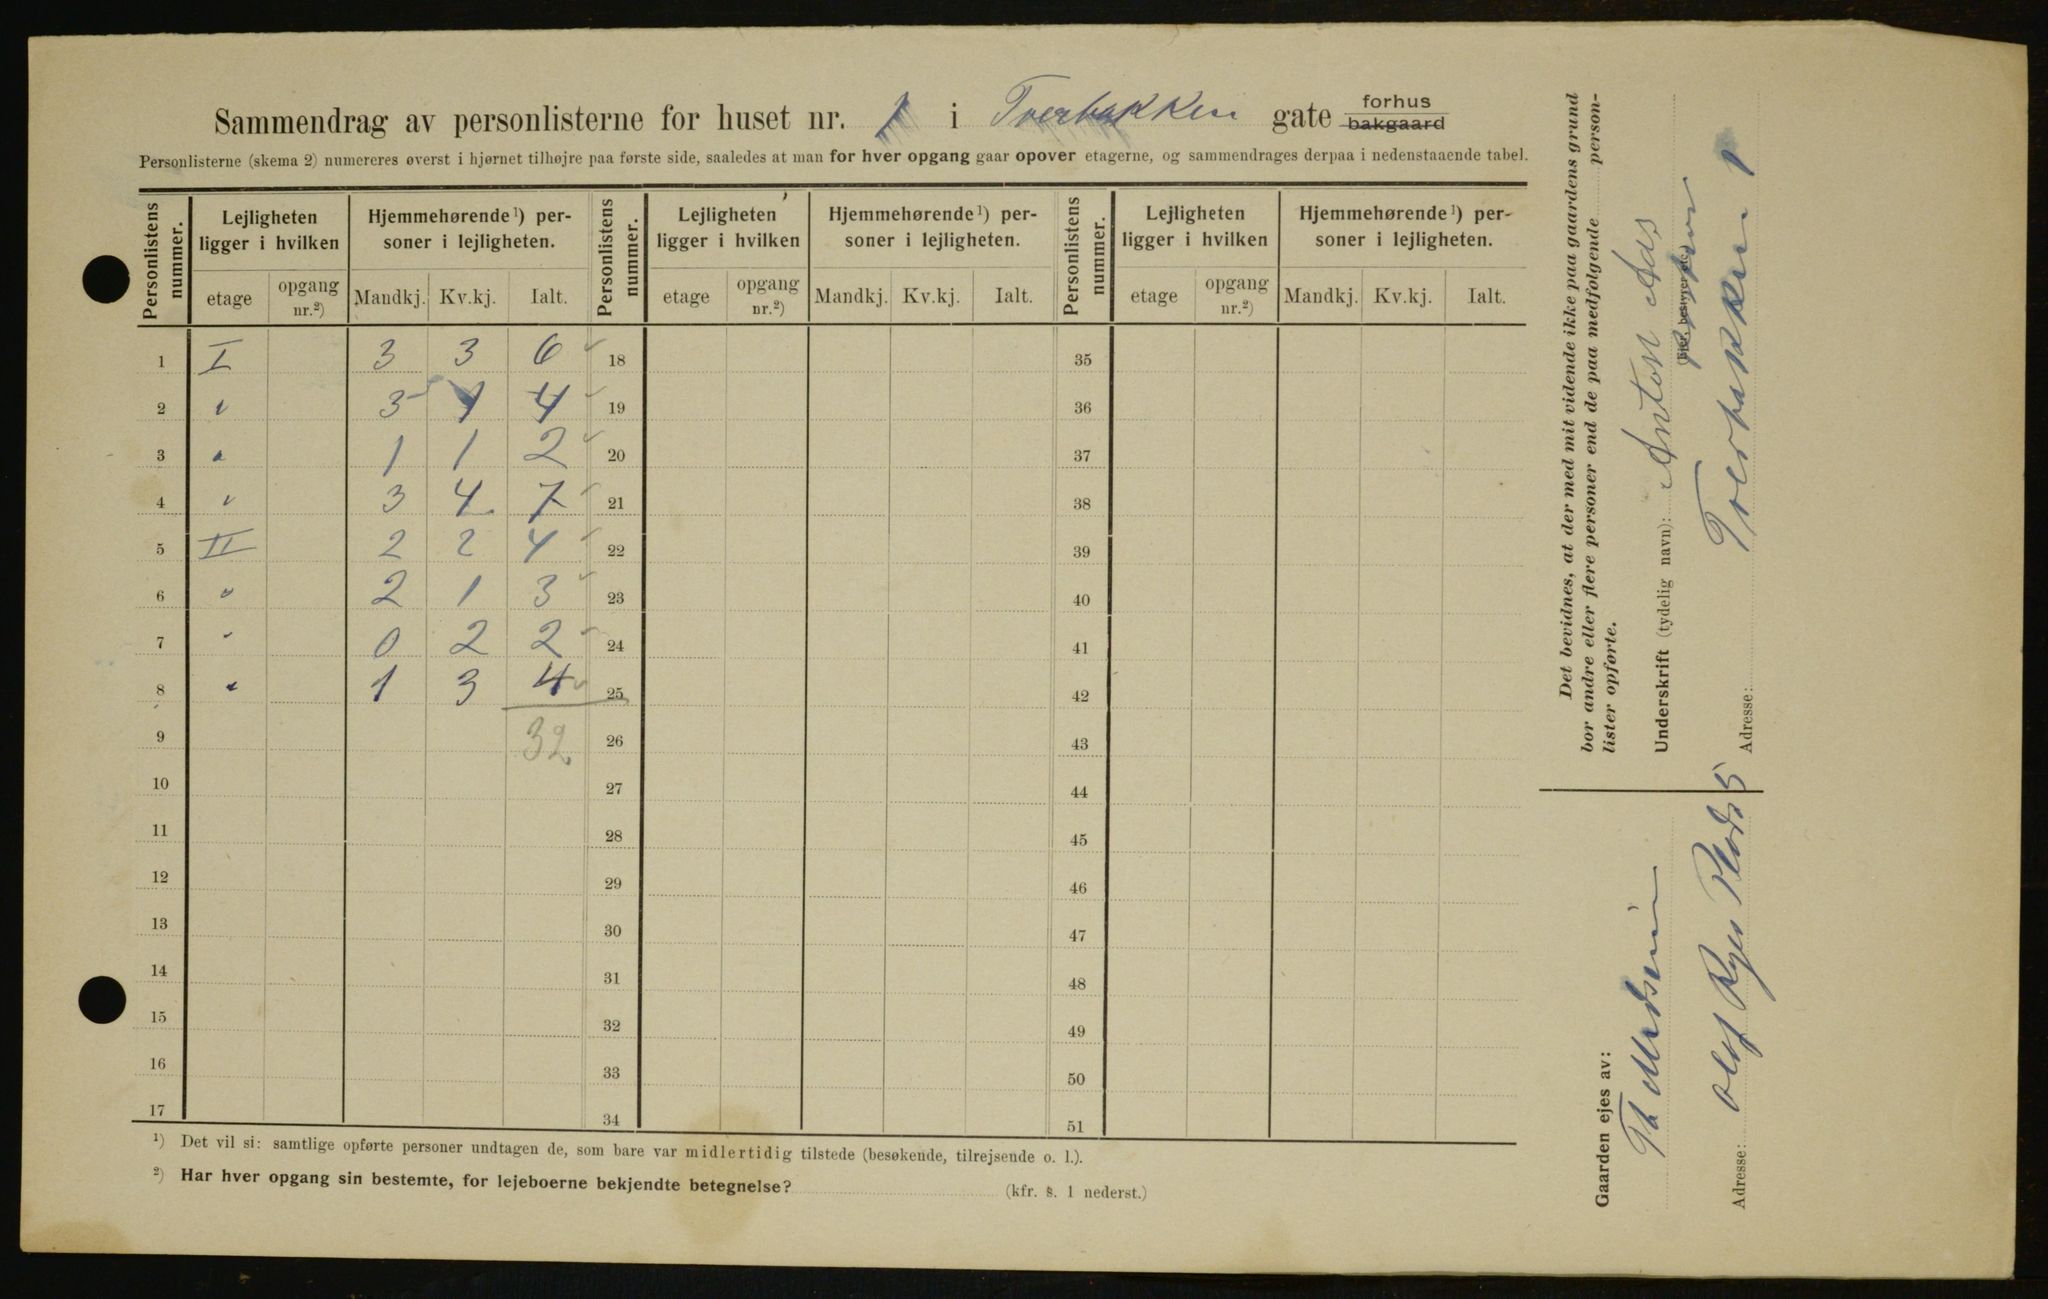 Sammendrag av personlisterne for huset nr. 1 i Tverbakken gate forhus
bakgaard
Personlisterne (skema 2) numereres øverst i hjørnet tilhøjre paa første side, saaledes at man for hver opgang gaar opover etagerne, og sammendrages derpaa i nedenstaaende tabel.
Personlistens nummer. Lejligheten ligger i hvilken Hjemmehørende ¹) personer i lejligheten. Personlistens nummer. Lejligheten ligger i hvilken Hjemmehørende ¹) personer i lejligheten. Personlistens nummer. Lejligheten ligger i hvilken Hjemmehørende ¹) personer i lejligheten.
etage opgang nr.²) Mandkj. Kv.kj. Ialt. etage opgang nr.²) Mandkj. Kv.kj. Ialt. etage opgang nr.²) Mandkj. Kv.kj. Ialt.
1 I 3 3 6 18 35
2 " 3 1 4 19 36
3 " 1 1 2 20 37
4 " 3 4 7 21 38
5 II 2 2 4 22 39
6 " 2 1 3 23 40
7 " 0 2 2 24 41
8 " 1 3 4 25 42
9 32 26 43
10 27 44
11 28 45
12 29 46
13 30 47
14 31 48
15 32 49
16 33 50
17 34 51
¹) Det vil si: samtlige opførte personer undtagen de, som bare var midlertidig tilstede (besøkende, tilrejsende o. l.).
²) Har hver opgang sin bestemte, for lejeboerne bekjendte betegnelse? (kfr. s. 1 nederst.)
Det bevidnes, at der med mit vidende ikke paa gaardens grund
bor andre eller flere personer end de paa medfølgende person-
lister opførte.
Underskrift (tydelig navn): Anton Aas
(Eier, bestyrer etc.)
Adresse: Tverbakken 1
Gaarden ejes av:
Th Madsen
Adresse: Olaf Ryes Plads 5